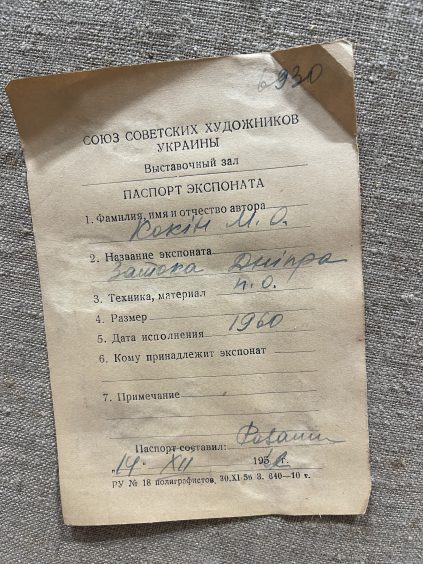 6930
СОЮЗ СОВЕТСКИХ ХУДОЖНИКОВ
УКРАИНЫ
Выставочный зал
ПАСПОРТ ЭКСПОНАТА
1. Фамилия, имя и отчество автора
Кокін М. О.
2. Название экспоната
Затока Дніпра
3. Техника, материал п. о.
4. Размер
5. Дата исполнения 1960
6. Кому принадлежит экспонат
7. Примечание
Паспорт составил:
14. XII 195 г.
РУ № 18 полиграфистов, 30.XI 56 З. 640—10 т.